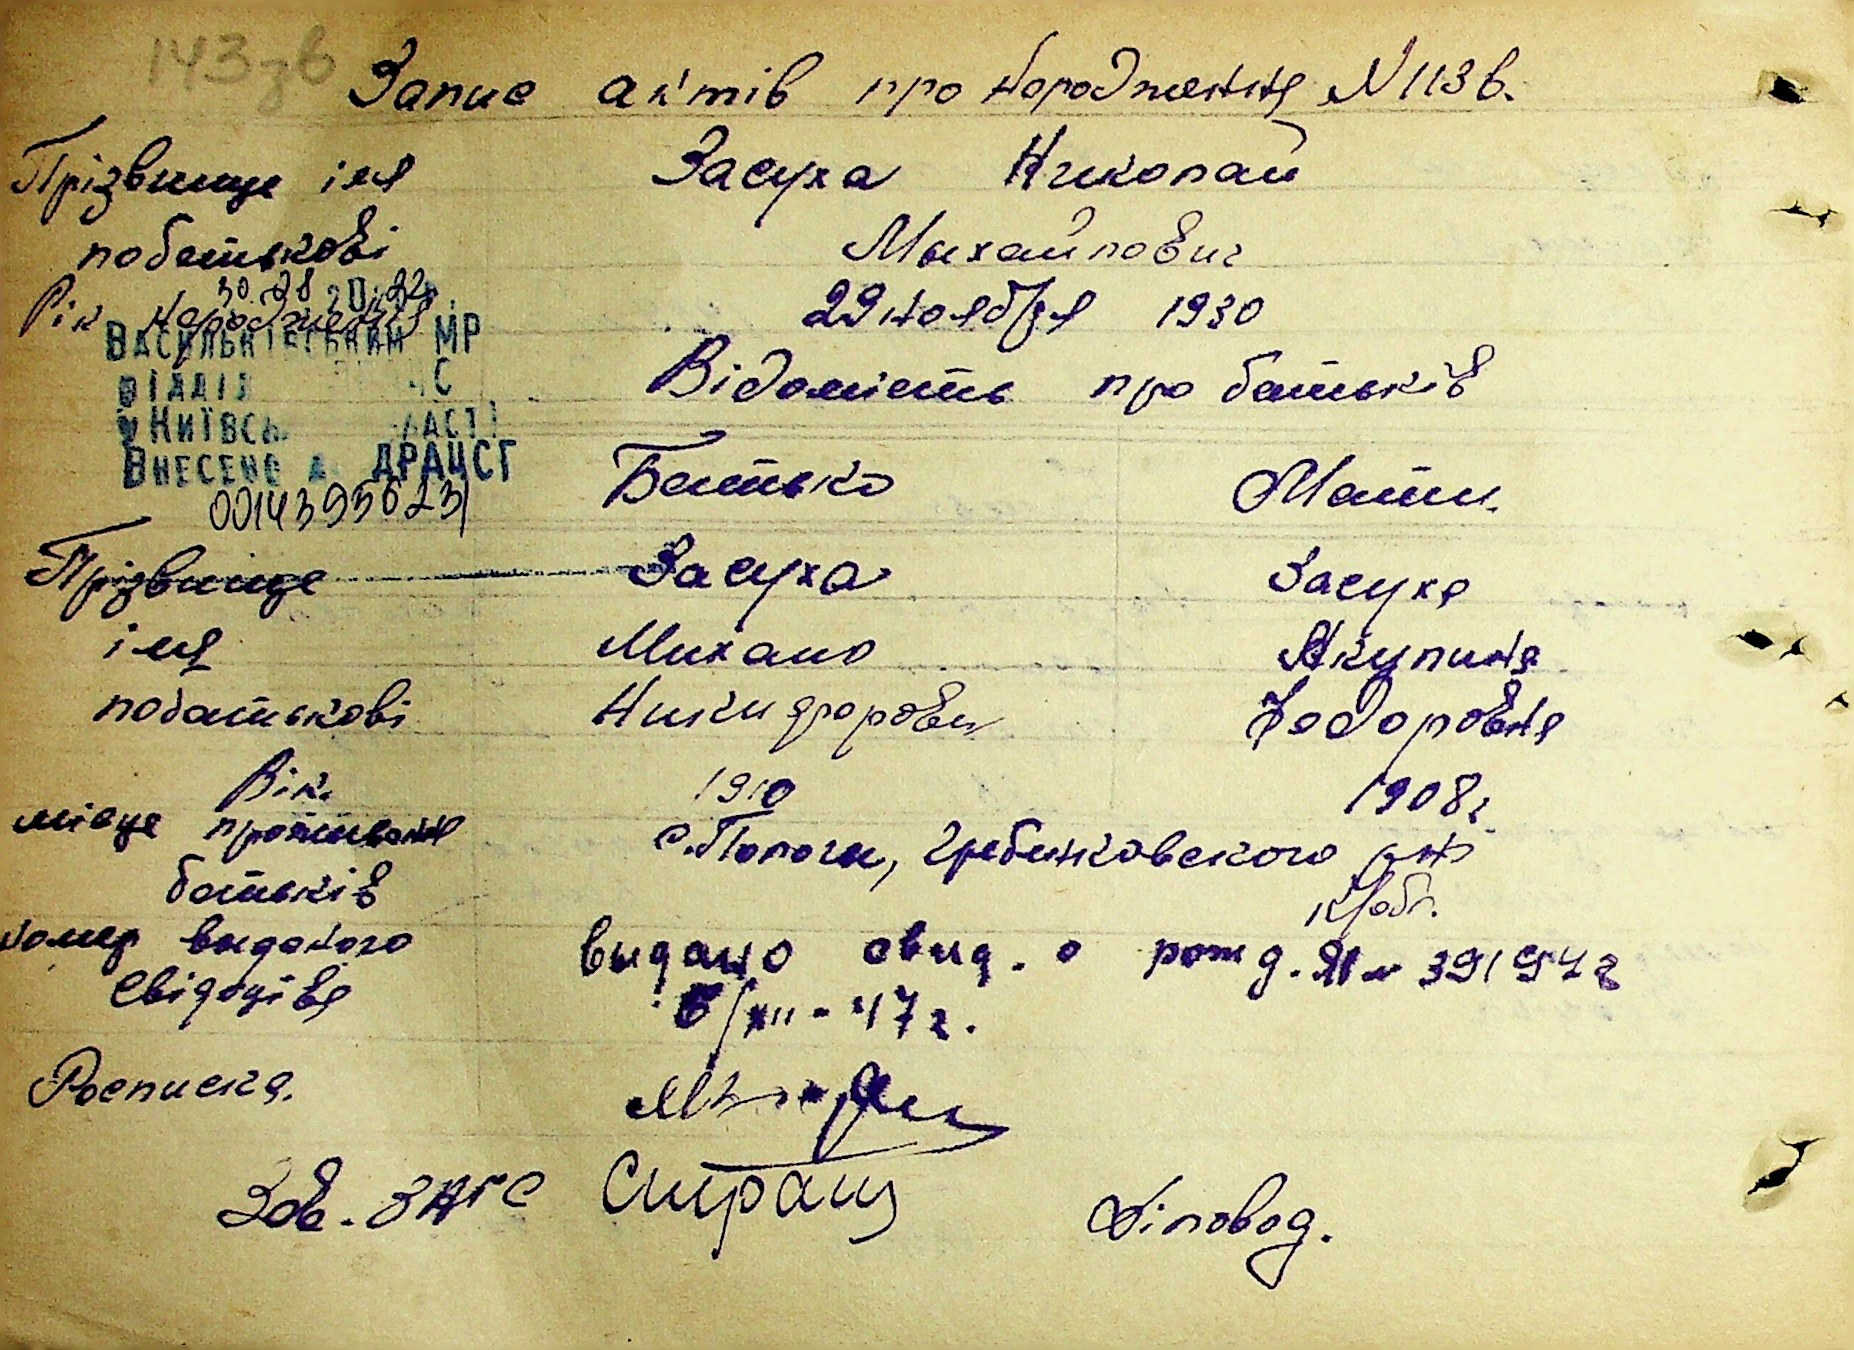 143зв
Запис актів про народження N 113 в.
Прізвище імя Засуха Николай
побатькові Михайлович
Рік народження 29 ноября 1930
Васильківським МР
відділ
Київсь
Внесено ДРАЦСГ
00143956231
Відомість про батьків
Батько Мати.
Прізвище Засуха Засуха
імя Михаило Якулина
побатькові Никифорови Федоровна
Вік. 1910 1908 г
місце проживання с. Пологи, Гребинковского р-н
батьків К/обл.
номер виданого выдано свид. о рожд. ЯІ № 391942
Свідоцтва 6/XII - 47 г.
Росписка.
Зав. ЗАГС Діловод.